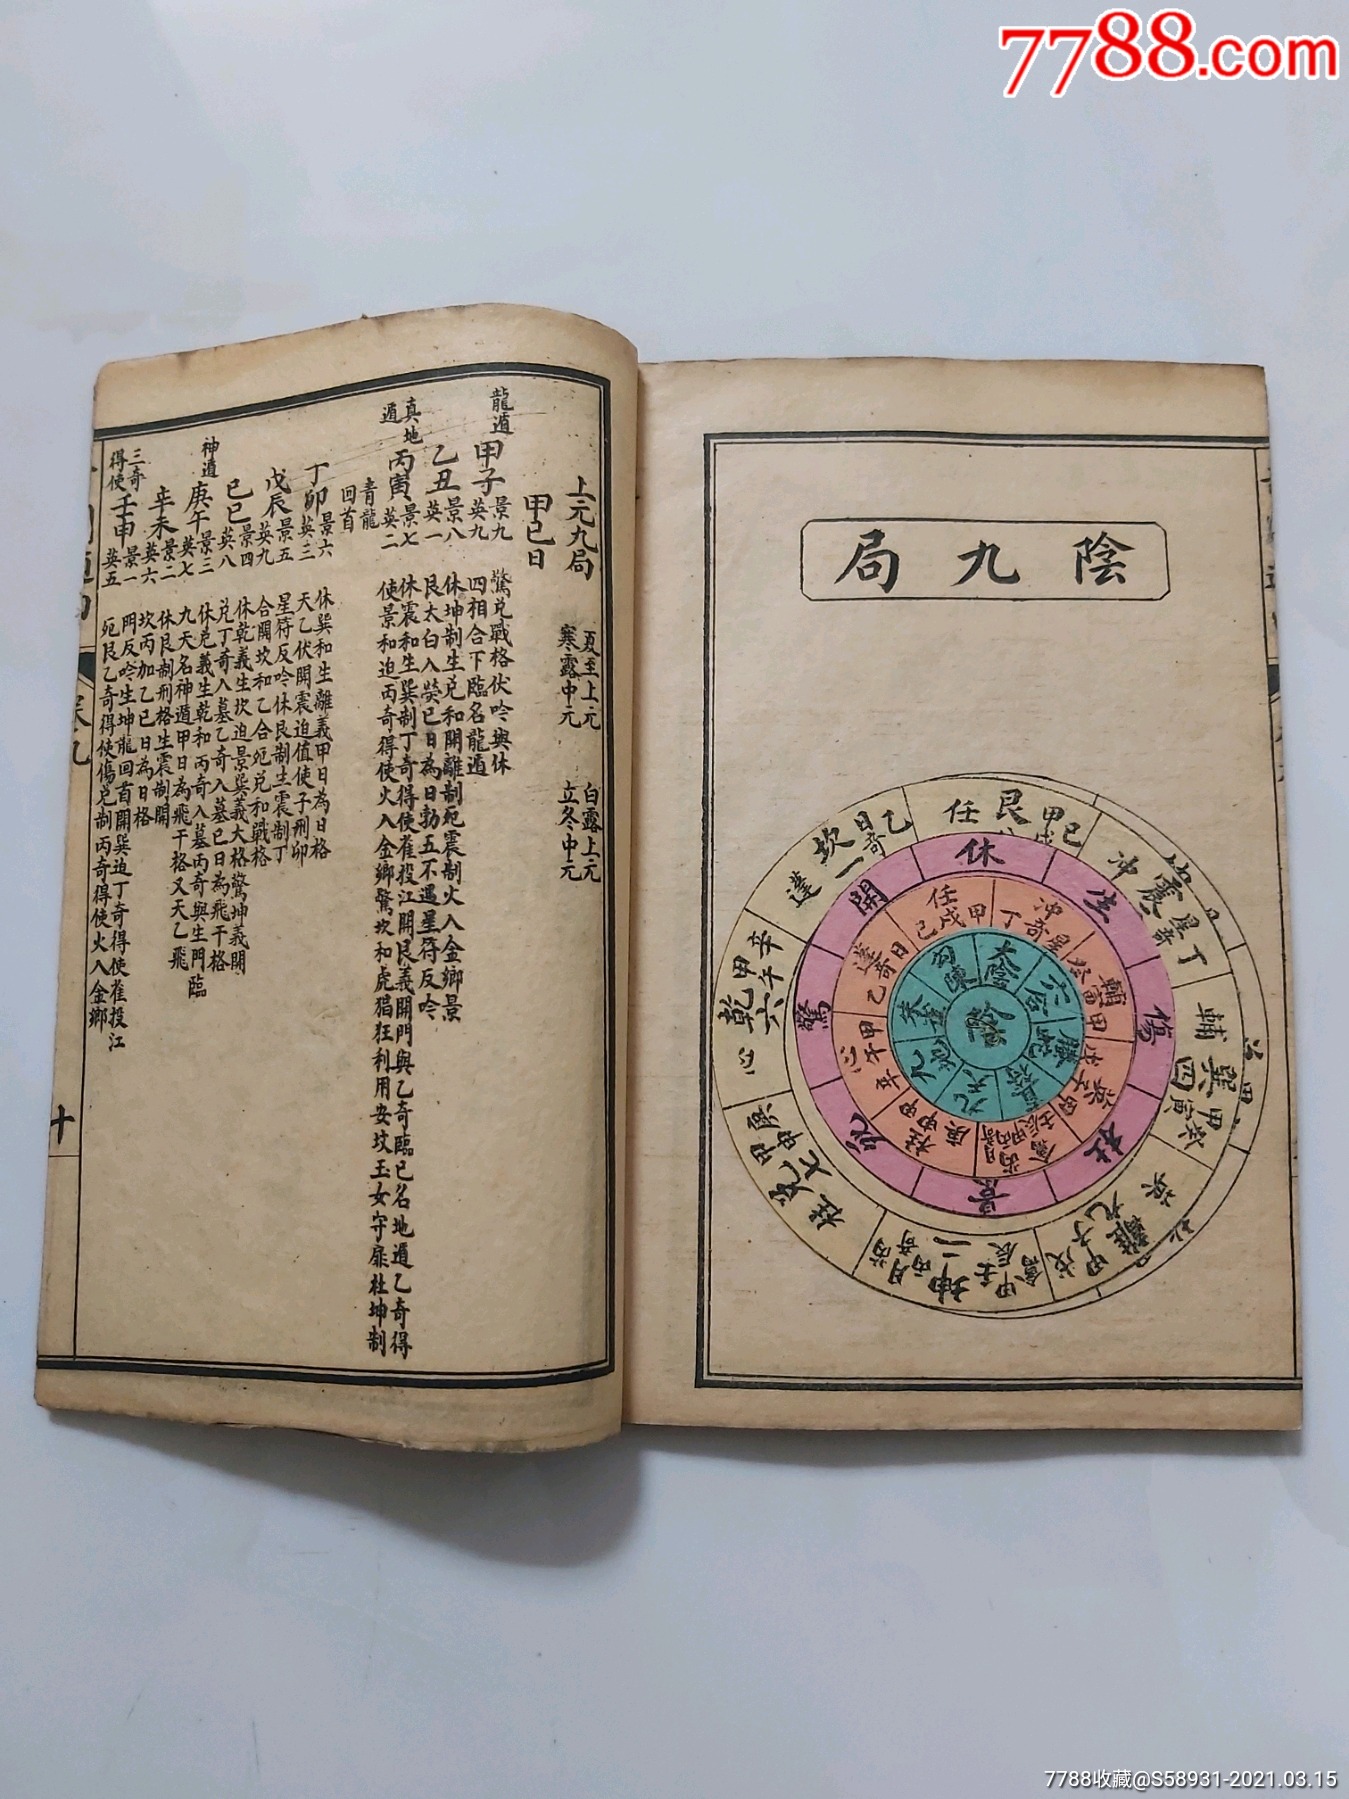 7788.com
陰九局
乙
日奇
坎一
蓬
艮
任
甲戌己
震
冲
星奇
丁
輔
巽四
甲寅癸
離九
甲子戊
坤二
甲辰壬
丙奇
月
禽
芮
兌七
甲申庚
柱
乾六
甲午辛
心
休
生
傷
杜
景
死
驚
開
任
甲戌己
冲
星奇
丁
輔
甲寅癸
甲子
禽
甲辰壬
柱
甲申庚
心
甲午辛
乙
日奇
蓬
太陰
六合
九天
九地
朱雀
勾陳
上元九局　夏至上元　白露上元
寒露中元　立冬中元
甲己日
龍遁
甲子景九英九　驚兌戰格伏吟與休
四相合下臨名龍遁
乙丑景八英一　休坤制生兌和開離制死震制火入金鄉景
艮太白入熒己日為日勃五不遇星符反吟
真地遁
丙寅景七英二　休震和生巽制丁奇得使雀投江開艮義開門與乙奇臨己名地遁乙奇得
使景和迫丙奇得使火入金鄉驚坎和虎猖狂利用安坟玉女守扉杜坤制
青龍回首
丁卯景六英三　休巽和生離義甲日為日格
天乙伏開震迫值使子刑卯
戊辰景五英九　星符反吟休艮制生震制丁
合開坎和乙合死兌和戰格
己巳景四英八　休乾義生坎迫景巽義大格驚坤義開
兌丁奇入墓乙奇入墓己日為飛干格
神遁
庚午景三英七　休兌義生乾和丙奇入墓丙奇與生門臨
九天名神遁甲日為飛干格又天乙飛
辛未景二英六　休艮制刑格生震制開
坎丙加乙己日為日格
三奇得使
壬申景一英五　門反吟生坤龍回首開巽迫丁奇得使雀投江
死艮乙奇得使傷兌制丙奇得使火入金鄉
卷九
十
7788收藏@S58931-2021.03.15